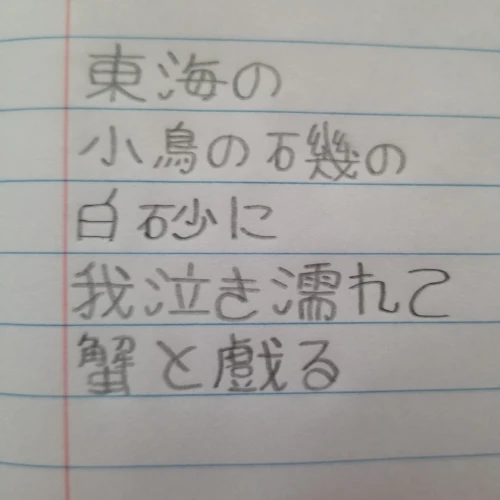 東海の
小鳥の石幾の
白砂に
我泣き濡れて
蟹と戯る